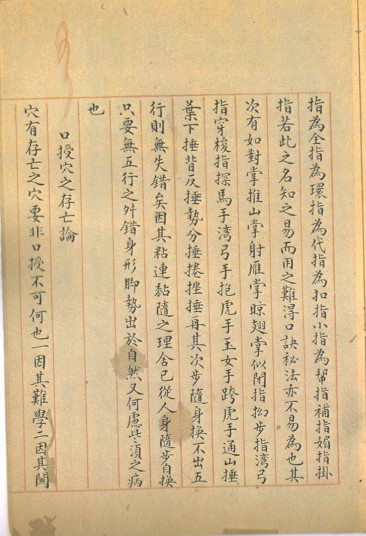 指為全指為環指為代指為扣指小指為幫指補指媚指掛
指若此之名知之易而用之難得口訣秘法亦不易為也其
次有如對掌推山掌射雁掌晾翅掌似閉指拗步指灣弓
指穿梭指探馬手灣弓手抱虎手玉女手跨虎手通山捶
葉下捶背反捶勢分捶捲挫捶再其次步隨身換不出五
行則無失錯矣因其粘連黏隨之理舍己從人身隨步自換
只要無五行之舛錯身形脚勢出於自然又何慮些湏之病
也
口授穴之存亡論
穴有存亡之穴要非口授不可何也一因其難學二因其關